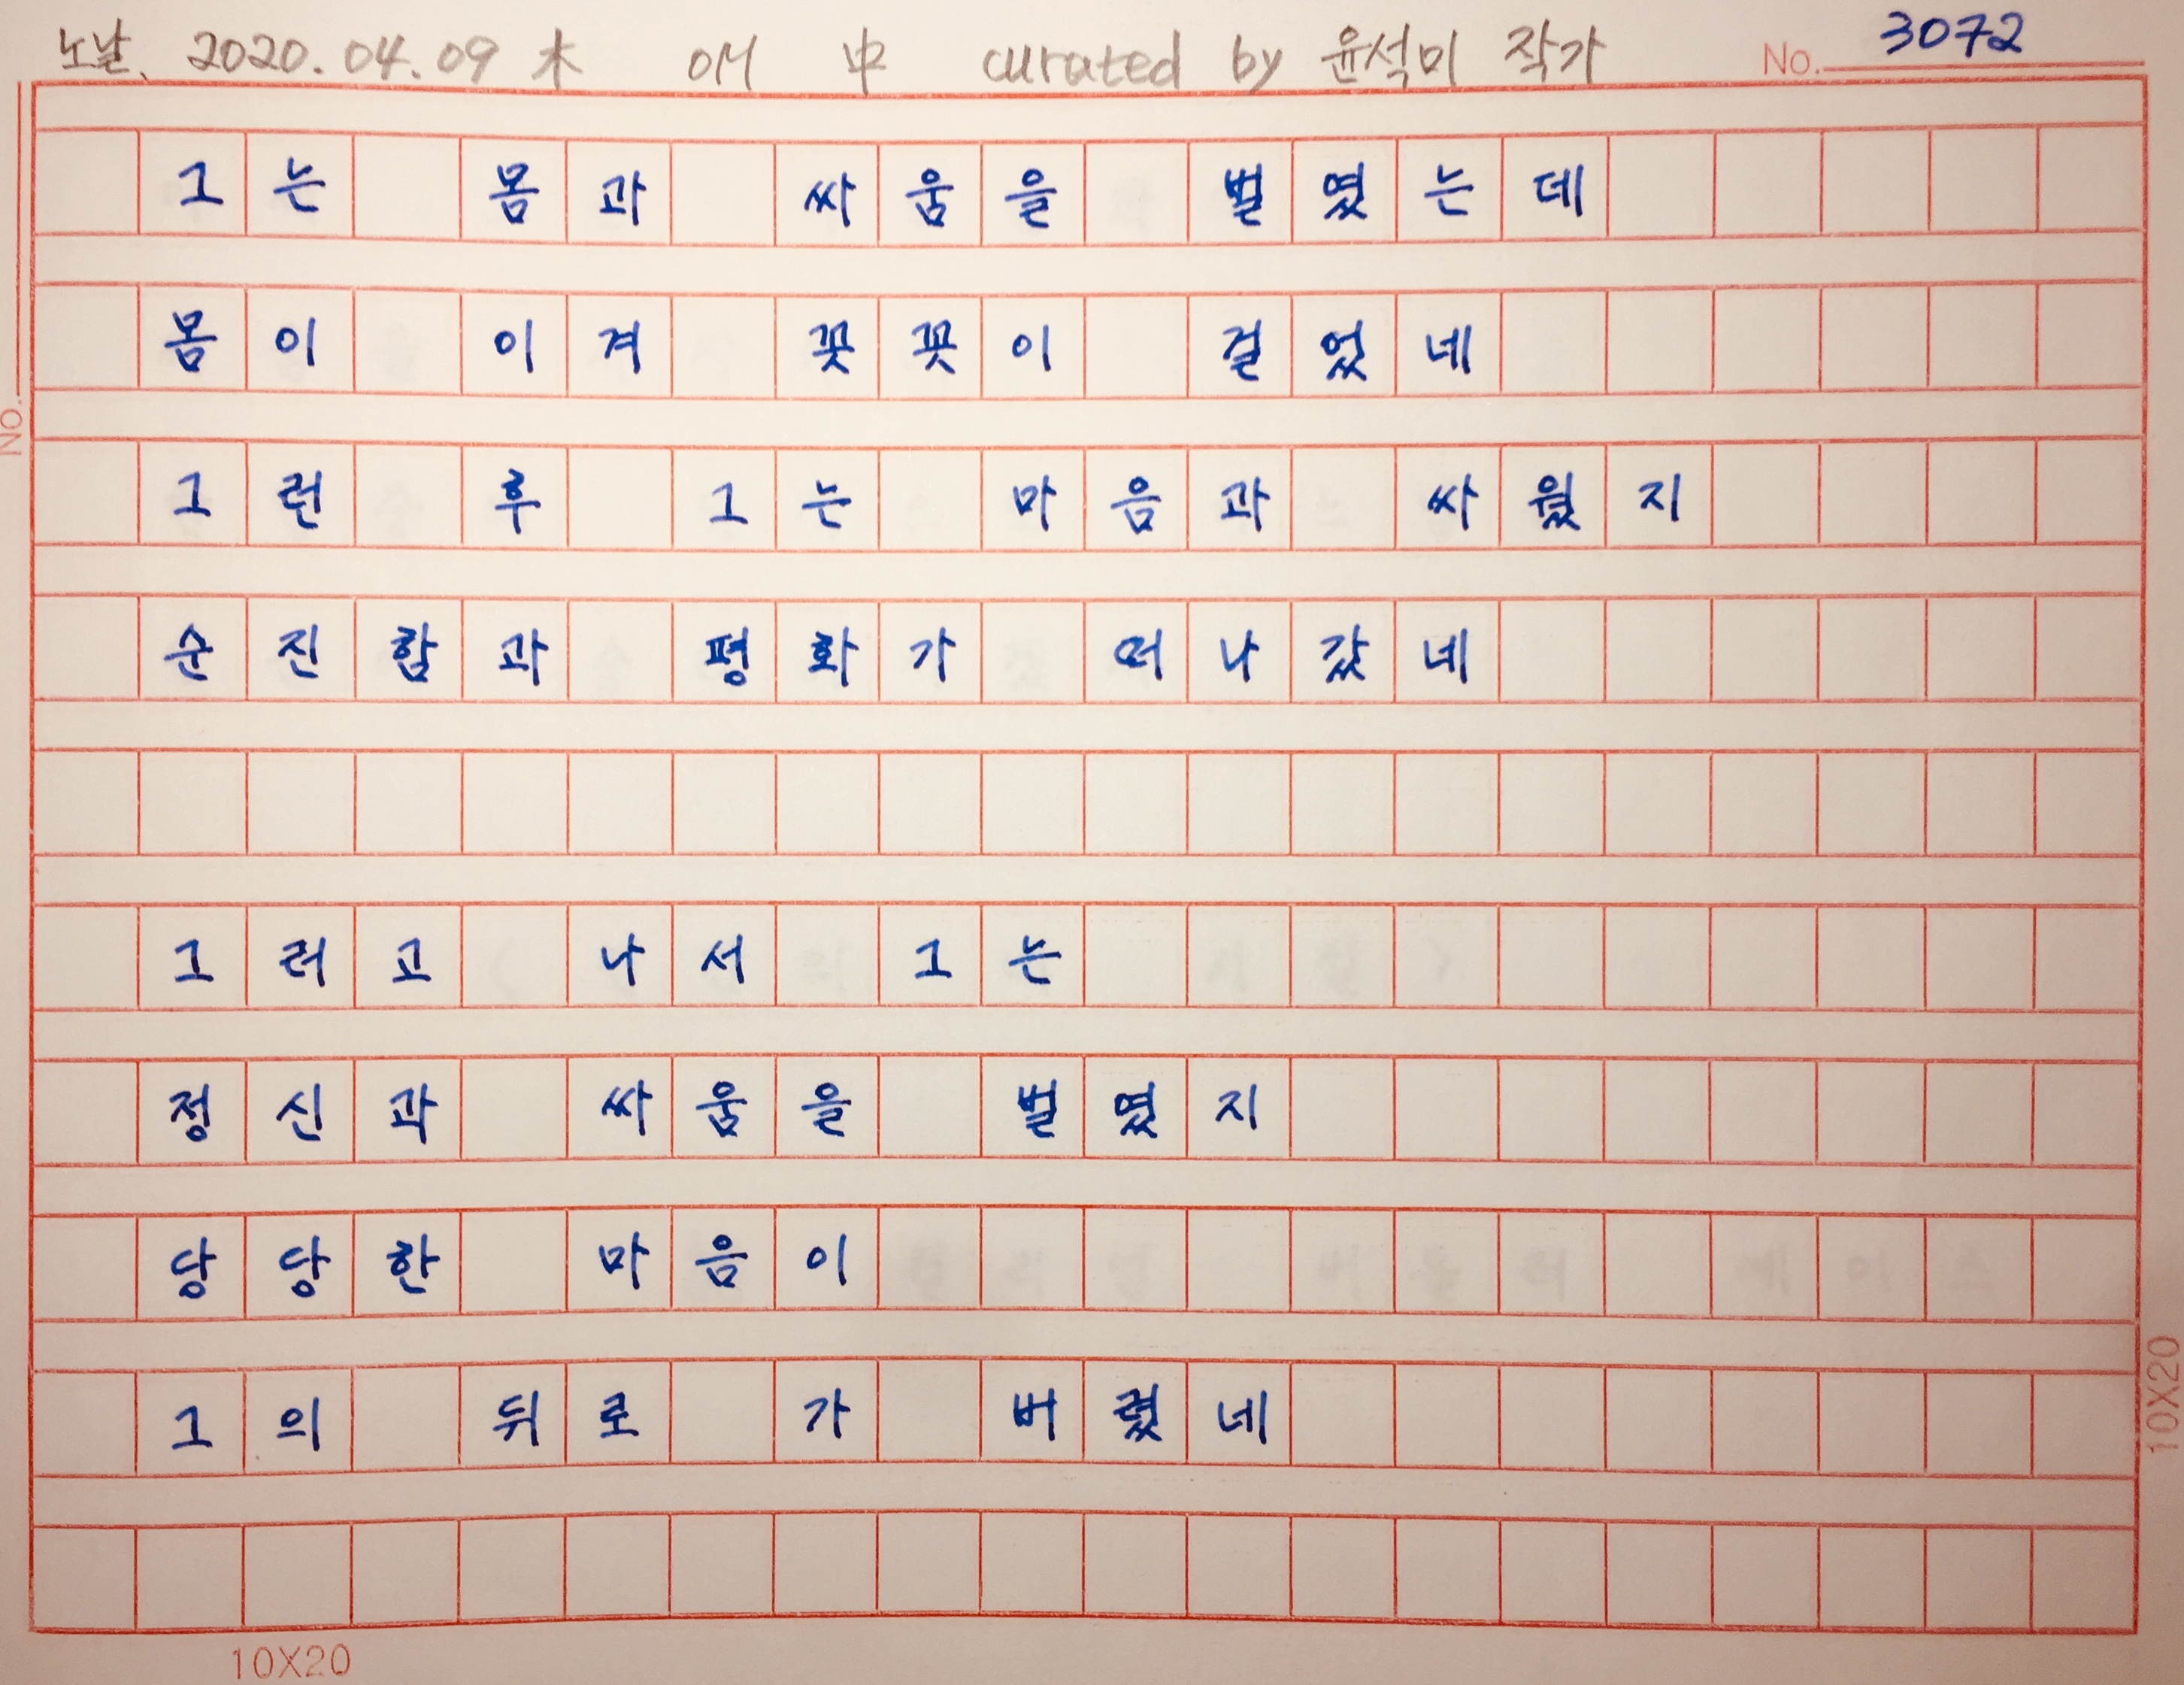 노날. 2020. 04. 09 木 OM 中 curated by 윤석미 작가 No. 3072
그는 몸과 싸움을 벌였는데
몸이 이겨 꼿꼿이 걸었네
No.
그런 후 그는 마음과 싸웠지
순진함과 평화가 떠나갔네
그러고 나서 그는
정신과 싸움을 벌였지
당당한 마음이
그의 뒤로 가 버렸네
10X20
10X20